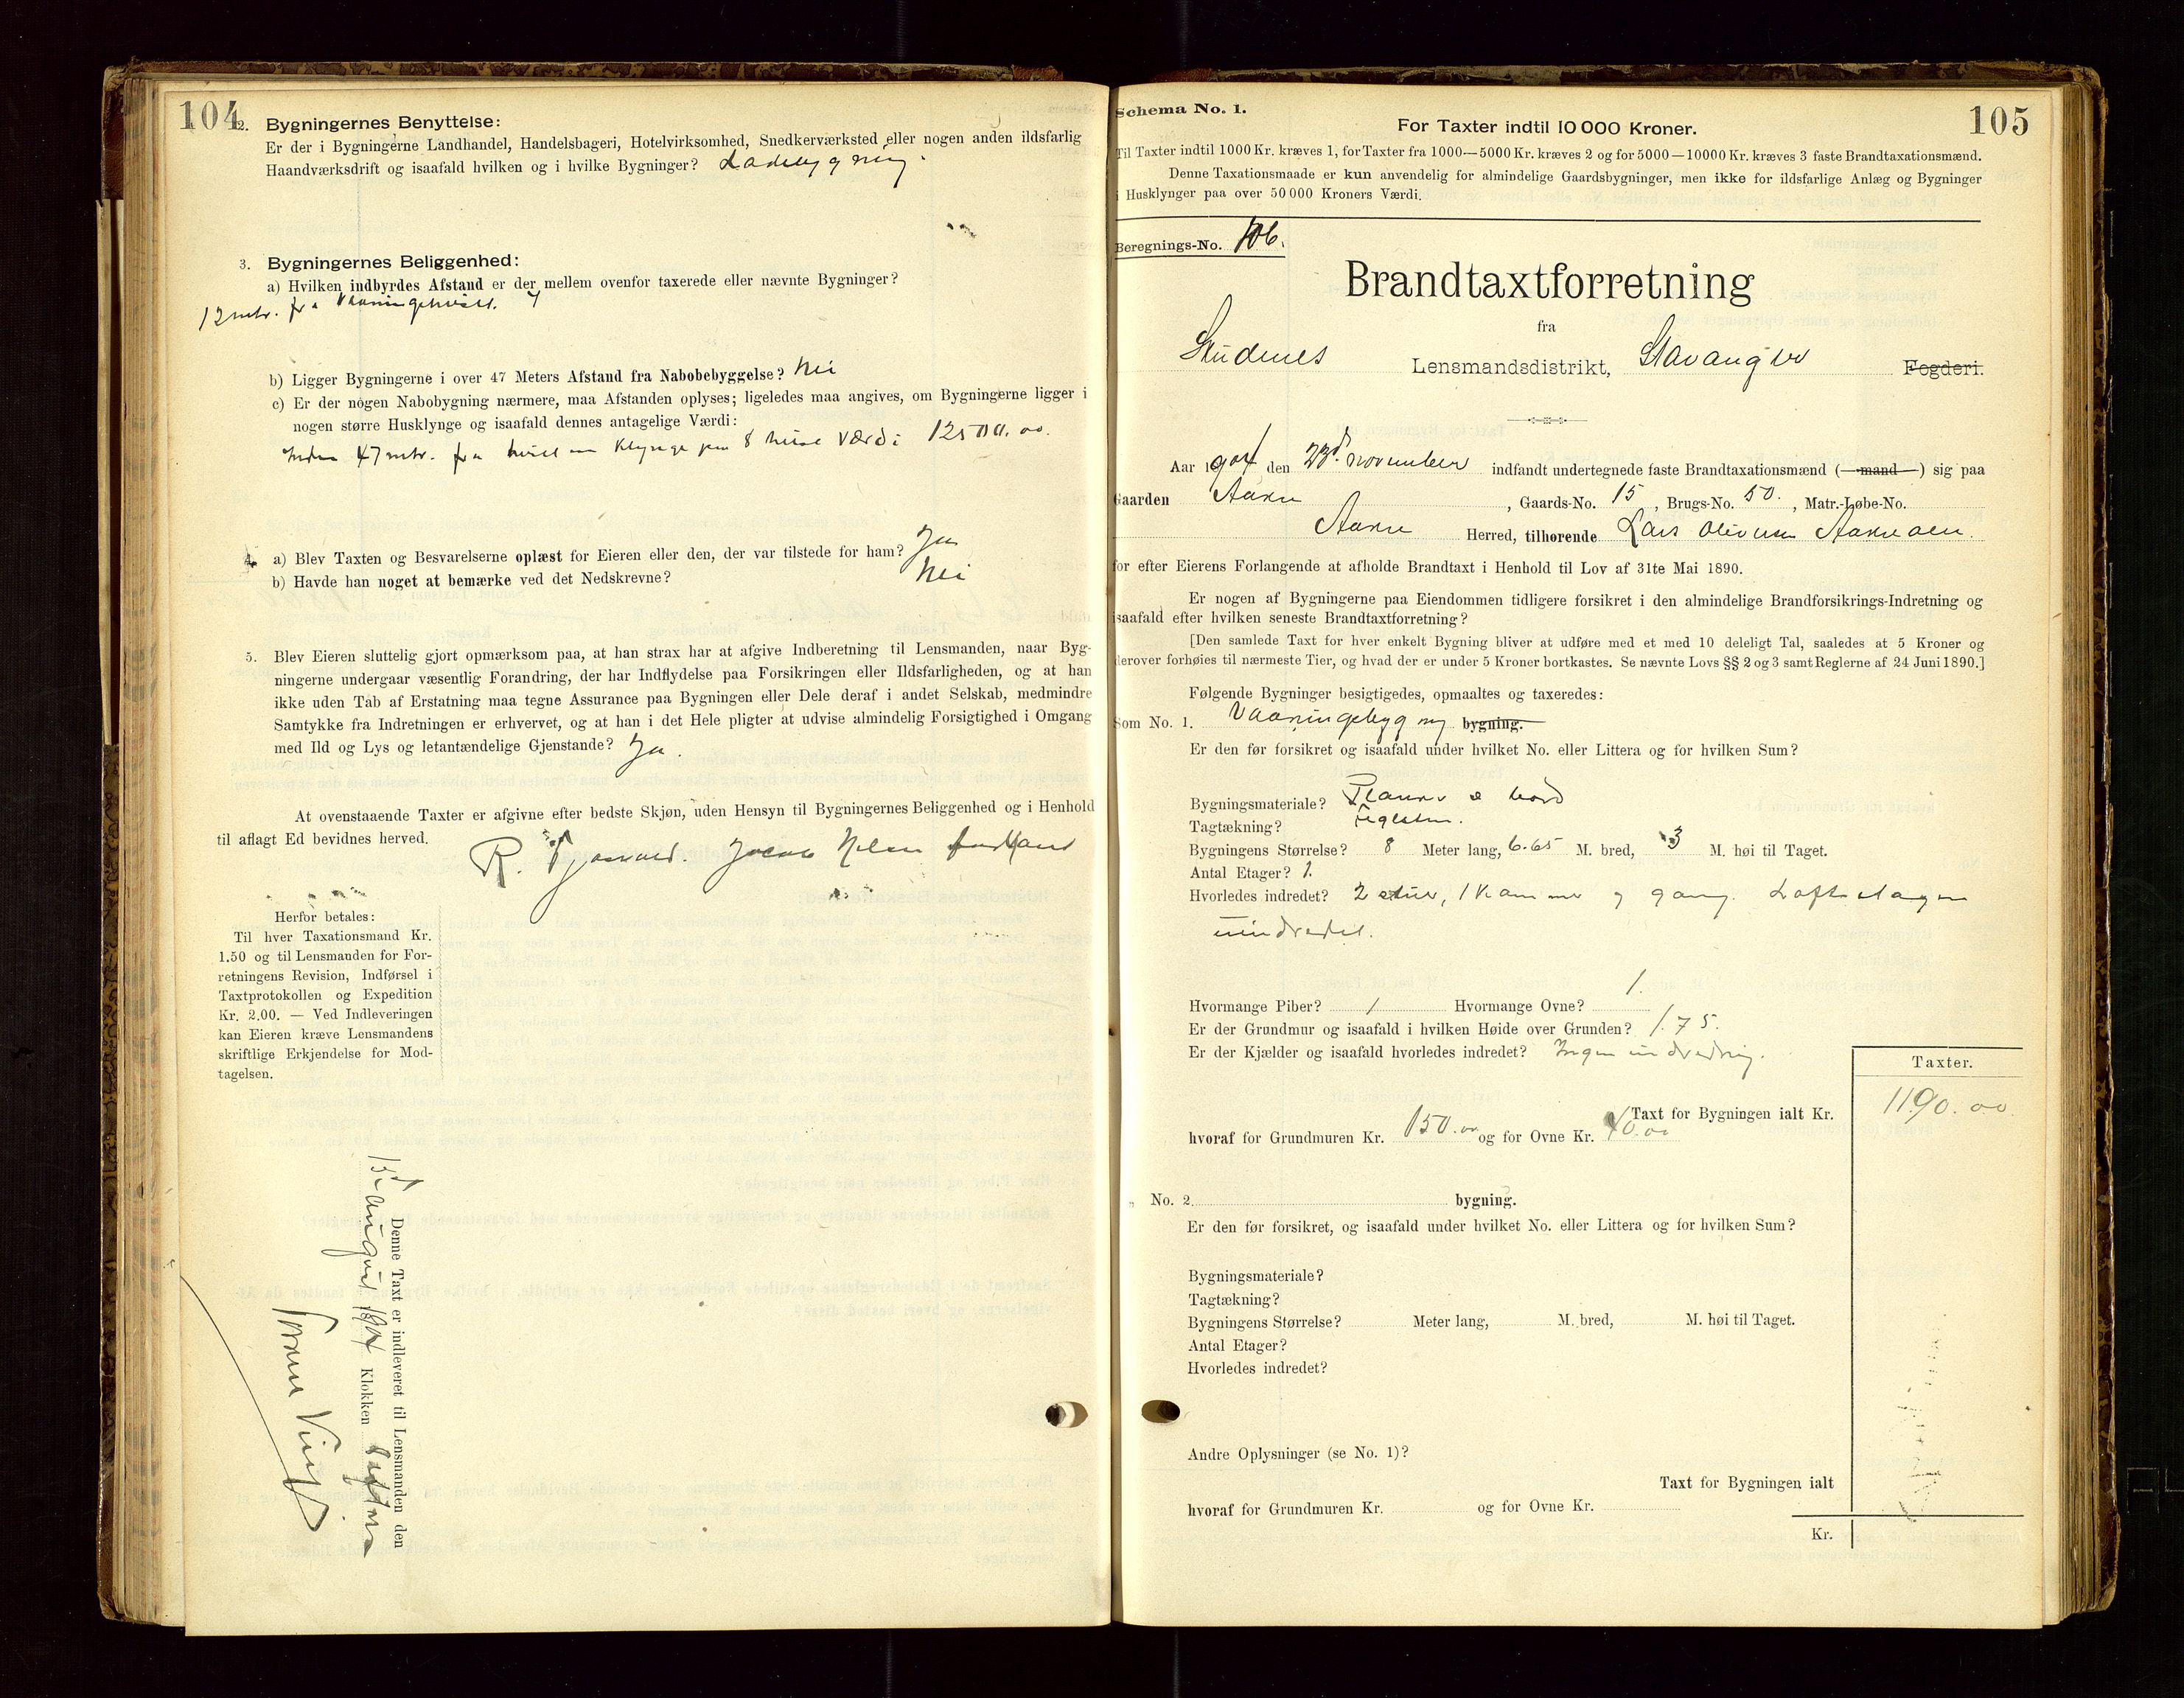 104
2. Bygningernes Benyttelse:
Er der i Bygningerne Landhandel, Handelsbageri, Hotelvirksomhed, Snedkerværksted eller nogen anden ildsfarlig
Haandværksdrift og isaafald hvilken og i hvilke Bygninger? Ladebygning.
3. Bygningernes Beliggenhed:
a) Hvilken indbyrdes Afstand er der mellem ovenfor taxerede eller nævnte Bygninger?
12 mtr. fra Vaaningshuset.
b) Ligger Bygningerne i over 47 Meters Afstand fra Nabobebyggelse? Nei
c) Er der nogen Nabobygning nærmere, maa Afstanden oplyses; ligeledes maa angives, om Bygningerne ligger i
nogen større Husklynge og isaafald dennes antagelige Værdi:
Inden 47 mtr. fra huset en Klynge paa 8 huse Værdi 12500.00.
4. a) Blev Taxten og Besvarelserne oplæst for Eieren eller den, der var tilstede for ham? Ja
b) Havde han noget at bemærke ved det Nedskrevne? Nei
5. Blev Eieren sluttelig gjort opmærksom paa, at han strax har at afgive Indberetning til Lensmanden, naar Byg-
ningerne undergaar væsentlig Forandring, der har Indflydelse paa Forsikringen eller Ildsfarligheden, og at han
ikke uden Tab af Erstatning maa tegne Assurance paa Bygningen eller Dele deraf i andet Selskab, medmindre
Samtykke fra Indretningen er erhvervet, og at han i det Hele pligter at udvise almindelig Forsigtighed i Omgang
med Ild og Lys og letantændelige Gjenstande? Ja.
At ovenstaaende Taxter er afgivne efter bedste Skjøn, uden Hensyn til Bygningernes Beliggenhed og i Henhold
til aflagt Ed bevidnes herved.
R. Jacob Nilsen
Herfor betales:
Til hver Taxationsmand Kr.
1.50 og til Lensmanden for For-
retningens Revision, Indførsel i
Taxtprotokollen og Expedition
Kr. 2.00. — Ved Indleveringen
kan Eieren kræve Lensmandens
skriftlige Erkjendelse for Mod-
tagelsen.
Denne Taxt er indleveret til Lensmanden den
13d August 1904 Klokken
105
Schema No. 1.
For Taxter indtil 10 000 Kroner.
Til Taxter indtil 1000 Kr. kræves 1, for Taxter fra 1000—5000 Kr. kræves 2 og for 5000—10000 Kr. kræves 3 faste Brandtaxationsmænd.
Denne Taxationsmaade er kun anvendelig for almindelige Gaardsbygninger, men ikke for ildsfarlige Anlæg og Bygninger
i Husklynger paa over 50 000 Kroners Værdi.
Beregnings-No. 106.
Brandtaxtforretning
fra
Skudenes Lensmandsdistrikt, Stavanger Fogderi.
Aar 1904 den 23d november indfandt undertegnede faste Brandtaxationsmænd (mand) sig paa
Gaarden Aakre, Gaards-No. 15, Brugs-No. 50., Matr.-Løbe-No.
Aakre Herred, tilhørende Lars Olivesen Aakreolen.
for efter Eierens Forlangende at afholde Brandtaxt i Henhold til Lov af 31te Mai 1890.
Er nogen af Bygningerne paa Eiendommen tidligere forsikret i den almindelige Brandforsikrings-Indretning og
isaafald efter hvilken seneste Brandtaxtforretning?
[Den samlede Taxt for hver enkelt Bygning bliver at udføre med et med 10 deleligt Tal, saaledes at 5 Kroner og
derover forhøies til nærmeste Tier, og hvad der er under 5 Kroner bortkastes. Se nævnte Lovs §§ 2 og 3 samt Reglerne af 24 Juni 1890.]
Følgende Bygninger besigtigedes, opmaaltes og taxeredes:
Som No. 1. Vaaningsbygning bygning.
Er den før forsikret og isaafald under hvilket No. eller Littera og for hvilken Sum?
Bygningsmateriale? Planker & bord
Tagtækning? Teglsten.
Bygningens Størrelse? 8 Meter lang, 6.65 M. bred, 3 M. høi til Taget.
Antal Etager? 1.
Hvorledes indredet? 2 stuer, 1 kammer og gang. Loftsetagen
uindredet.
Hvormange Piber? 1 Hvormange Ovne? 1.
Er der Grundmur og isaafald i hvilken Høide over Grunden? 1.75.
Er der Kjælder og isaafald hvorledes indredet? Ingen indredning.
Taxter.
Taxt for Bygningen ialt Kr. 1190.00
hvoraf for Grundmuren Kr. 150.00 og for Ovne Kr. 40.00
„ No. 2. bygning.
Er den før forsikret, og isaafald under hvilket No. eller Littera og for hvilken Sum?
Bygningsmateriale?
Tagtækning?
Bygningens Størrelse? Meter lang, M. bred, M. høi til Taget.
Antal Etager?
Hvorledes indredet?
Andre Oplysninger (se No. 1)?
Taxt for Bygningen ialt
hvoraf for Grundmuren Kr. og for Ovne Kr.
Kr.